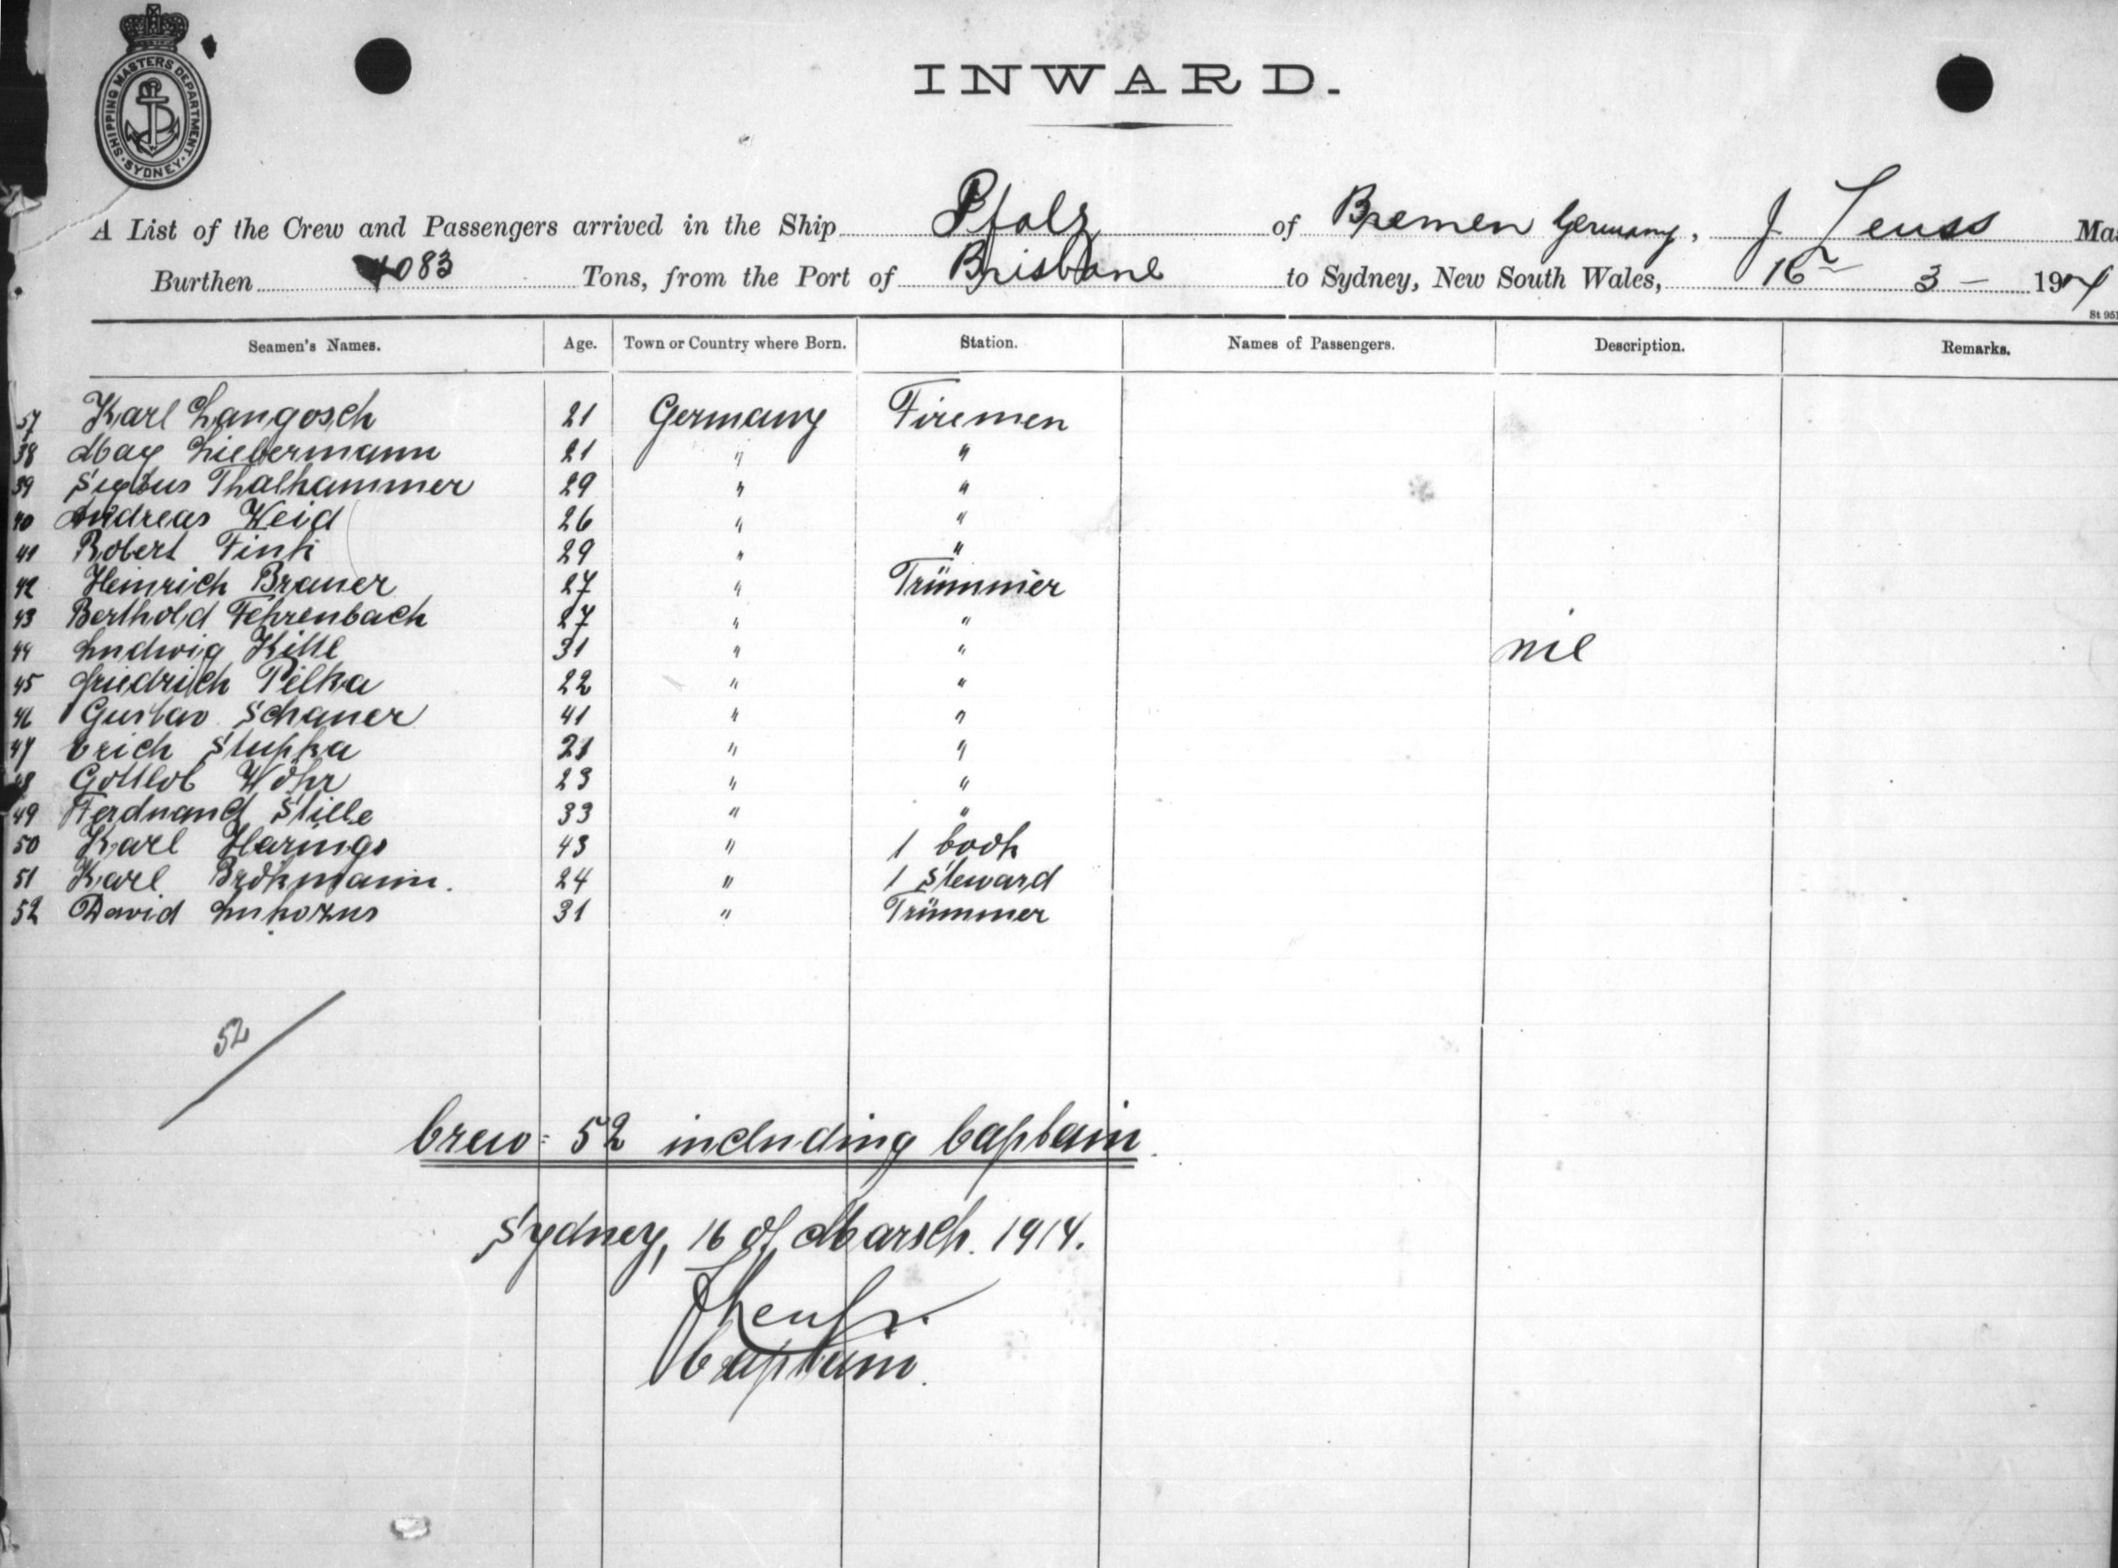 SHIPPING MASTERS DEPARTMENT
SYDNEY
INWARD.
A List of the Crew and Passengers arrived in the Ship Pfalz of Bremen Germany, J Leuss Mas
Burthen 4083 Tons, from the Port of Brisbane to Sydney, New South Wales, 16 3 - 1914
St 951
Seamen's Names. Age. Town or Country where Born. Station. Names of Passengers. Description. Remarks.
37 Karl Langosch 21 Germany Firemen
38 Max Liebermann 21 " "
39 Thalhammer 29 " "
40 Andreas Weid 26 " "
41 Robert Fink 29 " "
42 Heinrich Brauer 27 " Trümmer
43 Berthold Fehrenbach 27 " "
44 Ludwig 31 " " nil
45 Friedrich Pilka 22 " "
46 Gustav Schauer 41 " "
47 Erich Stupka 21 " "
48 Gottlob Wöhr 23 " "
49 Ferdnand Stille 33 " "
50 Karl Harings 43 " 1 Cook
51 Karl Brökmann. 24 " 1 Steward
52 David 31 " Trümmer
52
Crew = 52 including Captain.
Sydney, 16 of Marsch. 1914.
Captain.